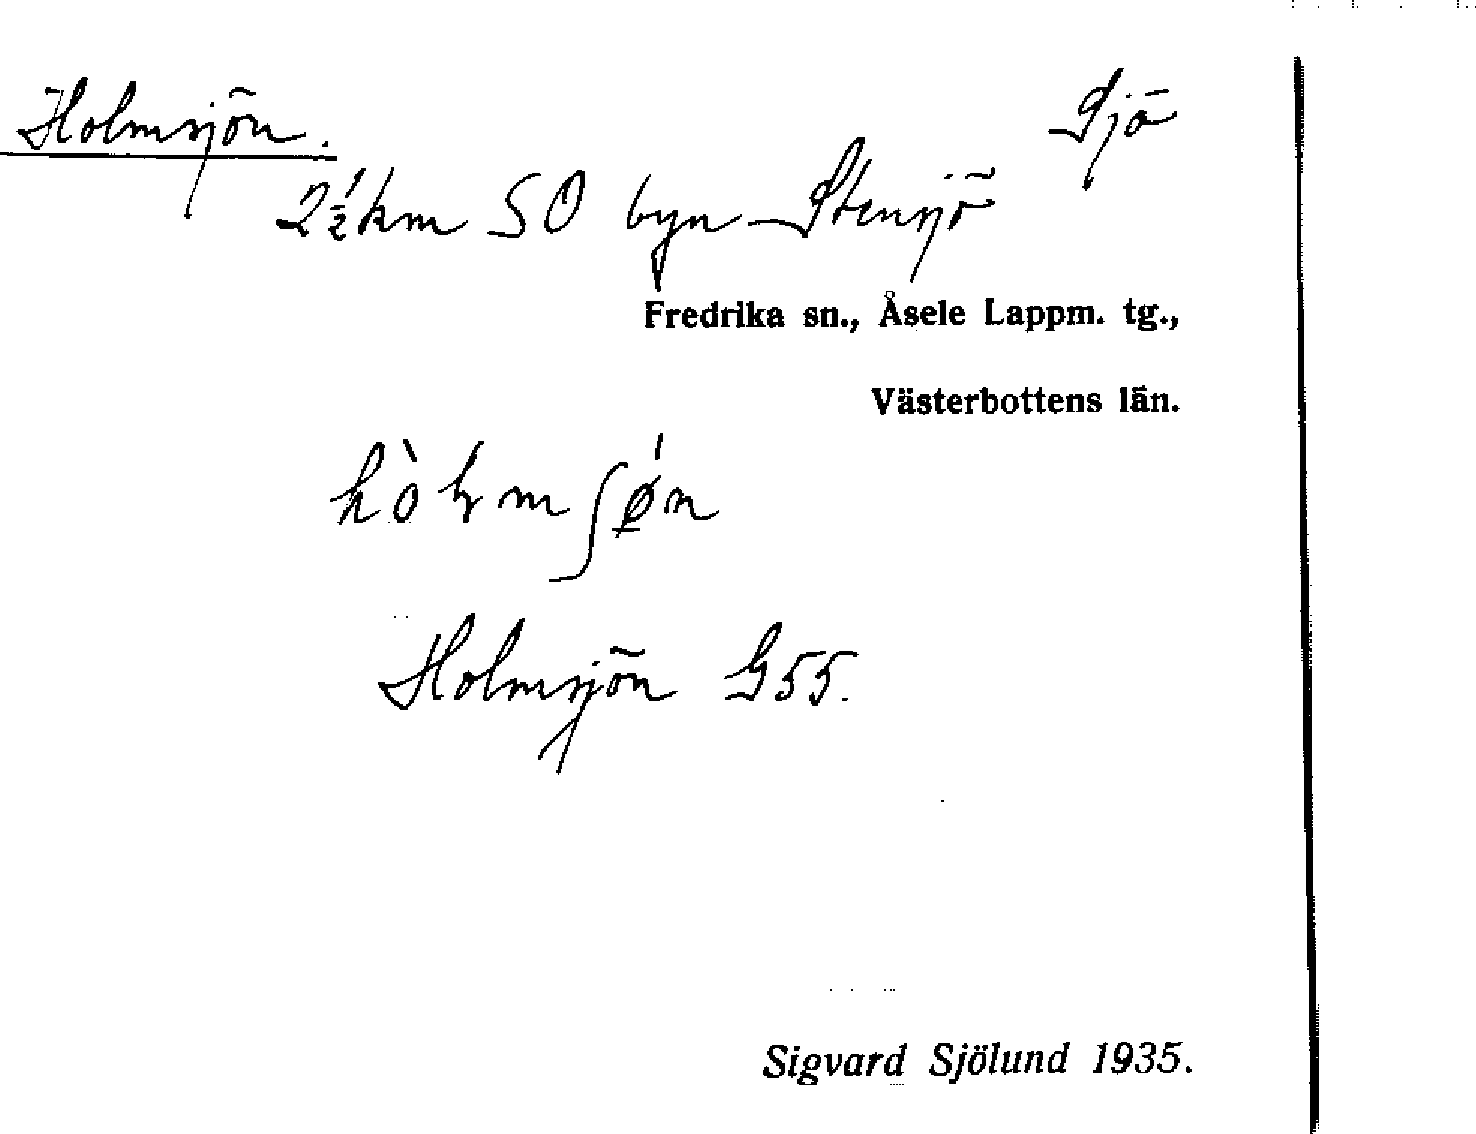 Holmsjön. Sjö
2½ km SO byn Stensjö
Fredrika sn., Åsele Lappm. tg.,
Västerbottens län.
Holmsjön G55.
Sigvard Sjölund 1935.